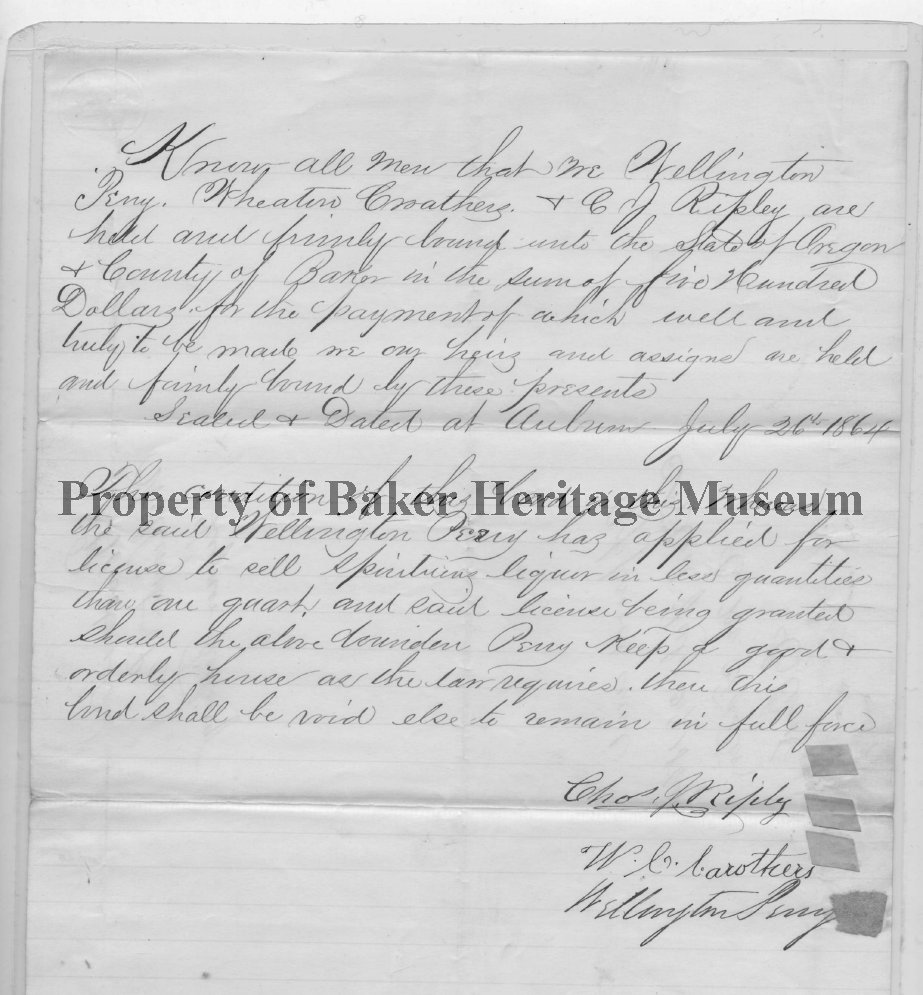 Know all men that we Wellington
Perry. Wheaton Crothers. & C J Ripley are
held and firmly bound unto the State of Oregon
& County of Baker in the sum of five Hundred
Dollars for the payment of which well and
truly to be made we our heirs and assigns are held
and firmly bound by these presents
Sealed & Dated at Auburn July 26th 1864
The condition of this bond is this Whereas
Property of Baker Heritage Museum
the said Wellington Perry has applied for
license to sell Spiritious liquor in less quantities
than one quart, and said license being granted
should the above bounden Perry Keep a good &
orderly house as the law requires. then this
bond shall be void else to remain in full force
Chas. J. Ripley
W. C. Carothers
Wellington Perry